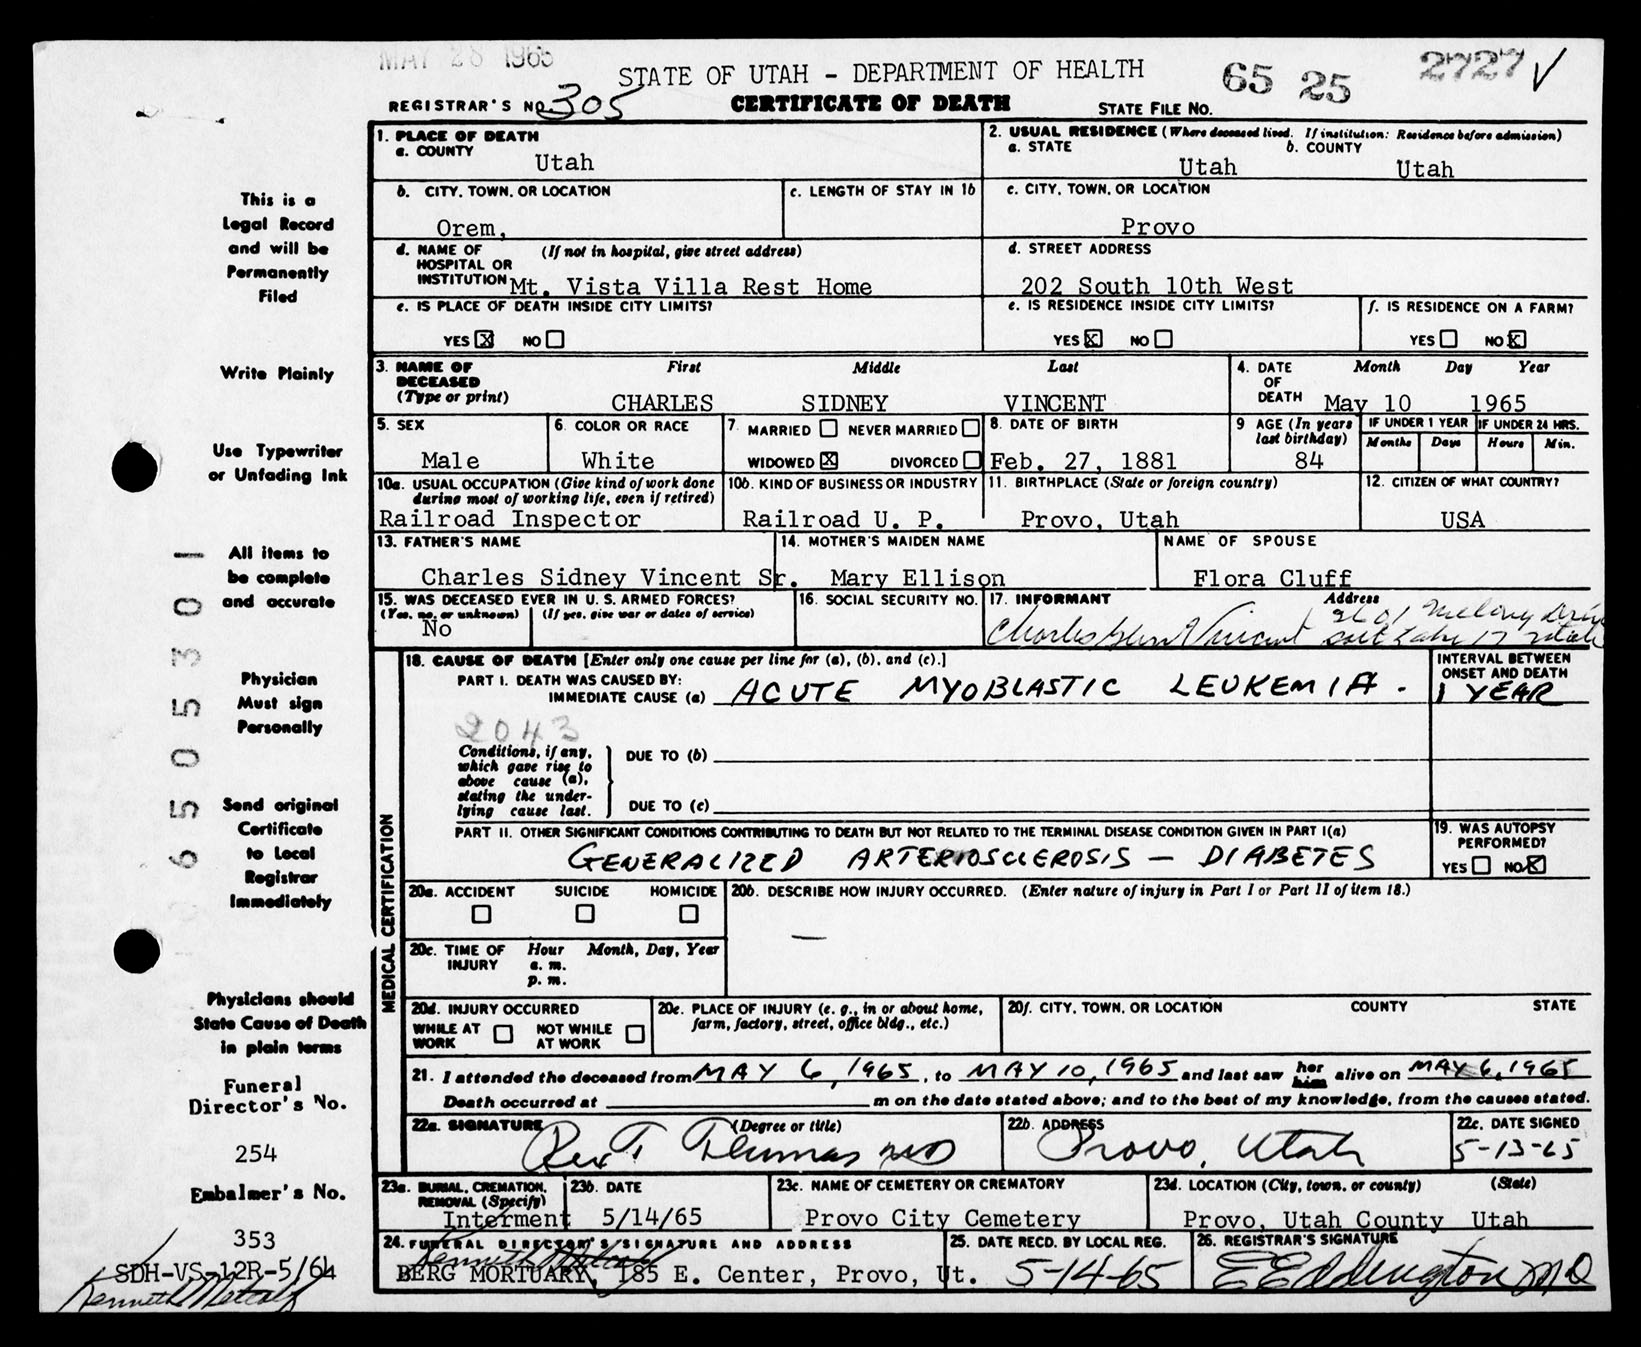 MAY 28 1965
STATE OF UTAH - DEPARTMENT OF HEALTH
65 25 2727 √
REGISTRAR'S NO. 305 CERTIFICATE OF DEATH STATE FILE NO.
1. PLACE OF DEATH
a. COUNTY
Utah
2. USUAL RESIDENCE (Where deceased lived. If institution: Residence before admission)
a. STATE b. COUNTY
Utah Utah
b. CITY, TOWN, OR LOCATION
Orem,
c. LENGTH OF STAY IN 1b
c. CITY, TOWN, OR LOCATION
Provo
d. NAME OF (If not in hospital, give street address)
HOSPITAL OR
INSTITUTION Mt. Vista Villa Rest Home
d. STREET ADDRESS
202 South 10th West
e. IS PLACE OF DEATH INSIDE CITY LIMITS?
YES X NO
e. IS RESIDENCE INSIDE CITY LIMITS?
YES X NO
f. IS RESIDENCE ON A FARM?
YES NO X
3. NAME OF First Middle Last
DECEASED
(Type or print)
CHARLES SIDNEY VINCENT
4. DATE Month Day Year
OF
DEATH May 10 1965
5. SEX
Male
6. COLOR OR RACE
White
7. MARRIED NEVER MARRIED
WIDOWED X DIVORCED
8. DATE OF BIRTH
Feb. 27, 1881
9 AGE (In years
last birthday)
84
IF UNDER 1 YEAR IF UNDER 24 HRS.
Months Days Hours Min.
10a. USUAL OCCUPATION (Give kind of work done
during most of working life, even if retired)
Railroad Inspector
10b. KIND OF BUSINESS OR INDUSTRY
Railroad U. P.
11. BIRTHPLACE (State or foreign country)
Provo, Utah
12. CITIZEN OF WHAT COUNTRY?
USA
13. FATHER'S NAME
Charles Sidney Vincent Sr.
14. MOTHER'S MAIDEN NAME
Mary Ellison
NAME OF SPOUSE
Flora Cluff
15. WAS DECEASED EVER IN U. S. ARMED FORCES?
(Yes, no, or unknown) (If yes, give war or dates of service)
No
16. SOCIAL SECURITY NO.
17. INFORMANT Address
Charles Vincent
MEDICAL CERTIFICATION
18. CAUSE OF DEATH [Enter only one cause per line for (a), (b), and (c).]
PART I. DEATH WAS CAUSED BY:
IMMEDIATE CAUSE (a) ACUTE MYOBLASTIC LEUKEMIA.
INTERVAL BETWEEN
ONSET AND DEATH
1 YEAR
2043
Conditions, if any,
which gave rise to
above cause (a),
stating the under-
lying cause last.
DUE TO (b)
DUE TO (c)
PART II. OTHER SIGNIFICANT CONDITIONS CONTRIBUTING TO DEATH BUT NOT RELATED TO THE TERMINAL DISEASE CONDITION GIVEN IN PART I(a)
GENERALIZED ARTERIOSCLEROSIS — DIABETES
19. WAS AUTOPSY
PERFORMED?
YES NO X
20a. ACCIDENT SUICIDE HOMICIDE
20b. DESCRIBE HOW INJURY OCCURRED. (Enter nature of injury in Part I or Part II of item 18.)
—
20c. TIME OF Hour Month, Day, Year
INJURY a. m.
p. m.
20d. INJURY OCCURRED
WHILE AT NOT WHILE
WORK AT WORK
20e. PLACE OF INJURY (e. g., in or about home,
farm, factory, street, office bldg., etc.)
20f. CITY, TOWN, OR LOCATION COUNTY STATE
21. I attended the deceased from MAY 6, 1965, to MAY 10, 1965 and last saw her him alive on MAY 6, 1965
Death occurred at m on the date stated above; and to the best of my knowledge, from the causes stated.
22a. SIGNATURE (Degree or title)
Rex T. Thomas MD
22b. ADDRESS
Provo, Utah
22c. DATE SIGNED
5-13-65
23a. BURIAL, CREMATION,
REMOVAL (Specify)
Interment
23b. DATE
5/14/65
23c. NAME OF CEMETERY OR CREMATORY
Provo City Cemetery
23d. LOCATION (City, town, or county) (State)
Provo, Utah County Utah
24. FUNERAL DIRECTOR'S SIGNATURE AND ADDRESS
Kenneth Metcalf
BERG MORTUARY, 185 E. Center, Provo, Ut.
25. DATE RECD. BY LOCAL REG.
5-14-65
26. REGISTRAR'S SIGNATURE
E E Eddington MD
This is a
Legal Record
and will be
Permanently
Filed
Write Plainly
Use Typewriter
or Unfading Ink
All items to
be complete
and accurate
Physician
Must sign
Personally
Send original
Certificate
to Local
Registrar
Immediately
Physicians should
State Cause of Death
in plain terms
Funeral
Director's No.
254
Embalmer's No.
353
SDH-VS-12R-5/64
Kenneth Metcalf
65050530 1